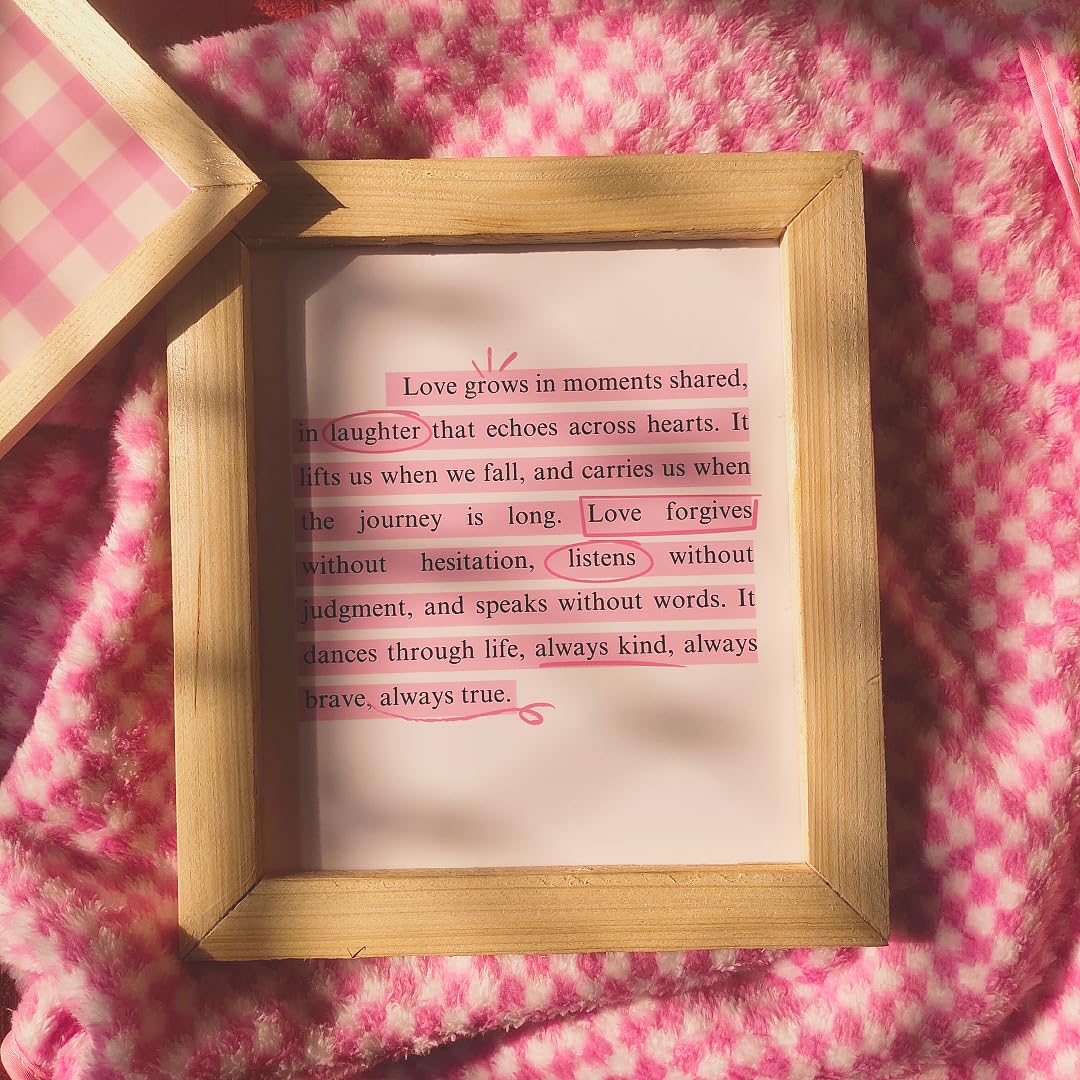 Love grows in moments shared,
in laughter that echoes across hearts. It
lifts us when we fall, and carries us when
the journey is long. Love forgives
without hesitation, listens without
judgment, and speaks without words. It
dances through life, always kind, always
brave, always true.